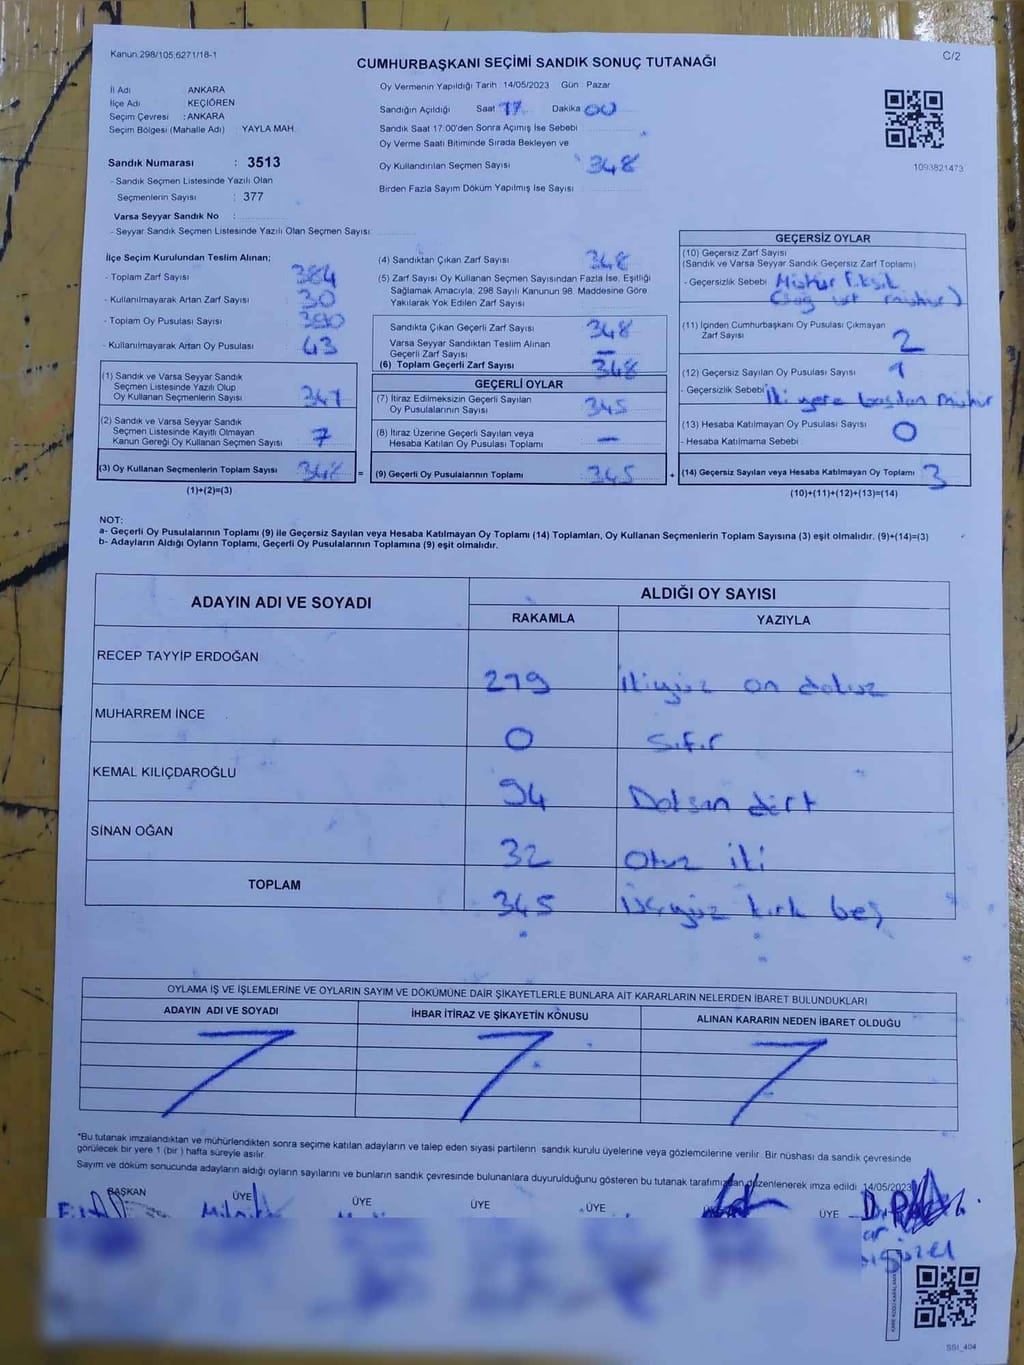 Kanun 298/105,6271/18-1
C/2
CUMHURBAŞKANI SEÇİMİ SANDIK SONUÇ TUTANAĞI
İl Adı ANKARA
İlçe Adı KEÇİÖREN
Seçim Çevresi : ANKARA
Seçim Bölgesi (Mahalle Adı) YAYLA MAH.
Sandık Numarası : 3513
- Sandık Seçmen Listesinde Yazılı Olan
Seçmenlerin Sayısı : 377
Varsa Seyyar Sandık No :
- Seyyar Sandık Seçmen Listesinde Yazılı Olan Seçmen Sayısı:
Oy Vermenin Yapıldığı Tarih 14/05/2023 Gün Pazar
Sandığın Açıldığı Saat 17 Dakika 00
Sandık Saat 17:00'den Sonra Açımış İse Sebebi
Oy Verme Saati Bitiminde Sırada Bekleyen ve
Oy Kullandırılan Seçmen Sayısı 348
Birden Fazla Sayım Döküm Yapılmış İse Sayısı
1093821473
İlçe Seçim Kurulundan Teslim Alınan;
- Toplam Zarf Sayısı 384
- Kullanılmayarak Artan Zarf Sayısı 30
- Toplam Oy Pusulası Sayısı 390
- Kullanılmayarak Artan Oy Pusulası 43
(1) Sandık ve Varsa Seyyar Sandık
Seçmen Listesinde Yazılı Olup
Oy Kullanan Seçmenlerin Sayısı 347
(2) Sandık ve Varsa Seyyar Sandık
Seçmen Listesinde Kayıtlı Olmayan
Kanun Gereği Oy Kullanan Seçmen Sayısı
(3) Oy Kullanan Seçmenlerin Toplam Sayısı 348 =
(1)+(2)=(3)
(4) Sandıktan Çıkan Zarf Sayısı 348
(5) Zarf Sayısı Oy Kullanan Seçmen Sayısından Fazla İse, Eşitliği
Sağlamak Amacıyla, 298 Sayılı Kanunun 98. Maddesine Göre
Yakılarak Yok Edilen Zarf Sayısı
Sandıkta Çıkan Geçerli Zarf Sayısı 348
Varsa Seyyar Sandıktan Teslim Alınan
Geçerli Zarf Sayısı –
(6) Toplam Geçerli Zarf Sayısı 348
GEÇERLİ OYLAR
(7) İtiraz Edilmeksizin Geçerli Sayılan
Oy Pusulalarının Sayısı 345
(8) İtiraz Üzerine Geçerli Sayılan veya
Hesaba Katılan Oy Pusulası Toplamı –
(9) Geçerli Oy Pusulalarının Toplamı 345 +
GEÇERSİZ OYLAR
(10) Geçersiz Zarf Sayısı
(Sandık ve Varsa Seyyar Sandık Geçersiz Zarf Toplamı)
- Geçersizlik Sebebi Mühür Eksik
(Sağ üst mühür)
(11) İçinden Cumhurbaşkanı Oy Pusulası Çıkmayan
Zarf Sayısı 2
(12) Geçersiz Sayılan Oy Pusulası Sayısı 1
- Geçersizlik Sebebi İki yere basılan mühür
(13) Hesaba Katılmayan Oy Pusulası Sayısı 0
- Hesaba Katılmama Sebebi
(14) Geçersiz Sayılan veya Hesaba Katılmayan Oy Toplamı 3
(10)+(11)+(12)+(13)=(14)
NOT:
a- Geçerli Oy Pusulalarının Toplamı (9) ile Geçersiz Sayılan veya Hesaba Katılmayan Oy Toplamı (14) Toplamları, Oy Kullanan Seçmenlerin Toplam Sayısına (3) eşit olmalıdır. (9)+(14)=(3)
b- Adayların Aldığı Oyların Toplamı, Geçerli Oy Pusulalarının Toplamına (9) eşit olmalıdır.
ADAYIN ADI VE SOYADI ALDIĞI OY SAYISI
RAKAMLA YAZIYLA
RECEP TAYYİP ERDOĞAN 219 ikiyüz on dokuz
MUHARREM İNCE 0 Sıfır
KEMAL KILIÇDAROĞLU 94 Doksan dört
SİNAN OĞAN 32 Otuz iki
TOPLAM 345 üçyüz kırk beş
OYLAMA İŞ VE İŞLEMLERİNE VE OYLARIN SAYIM VE DÖKÜMÜNE DAİR ŞİKAYETLERLE BUNLARA AİT KARARLARIN NELERDEN İBARET BULUNDUKLARI
ADAYIN ADI VE SOYADI İHBAR İTİRAZ VE ŞİKAYETİN KONUSU ALINAN KARARIN NEDEN İBARET OLDUĞU
*Bu tutanak imzalandıktan ve mühürlendikten sonra seçime katılan adayların ve talep eden siyasi partilerin sandık kurulu üyelerine veya gözlemcilerine verilir. Bir nüshası da sandık çevresinde
görülecek bir yere 1 (bir) hafta süreyle asılır.
Sayım ve döküm sonucunda adayların aldığı oyların sayılarını ve bunların sandık çevresinde bulunanlara duyurulduğunu gösteren bu tutanak tarafımızdan düzenlenerek imza edildi. 14/05/2023
BAŞKAN ÜYE ÜYE ÜYE ÜYE ÜYE
SSI_404